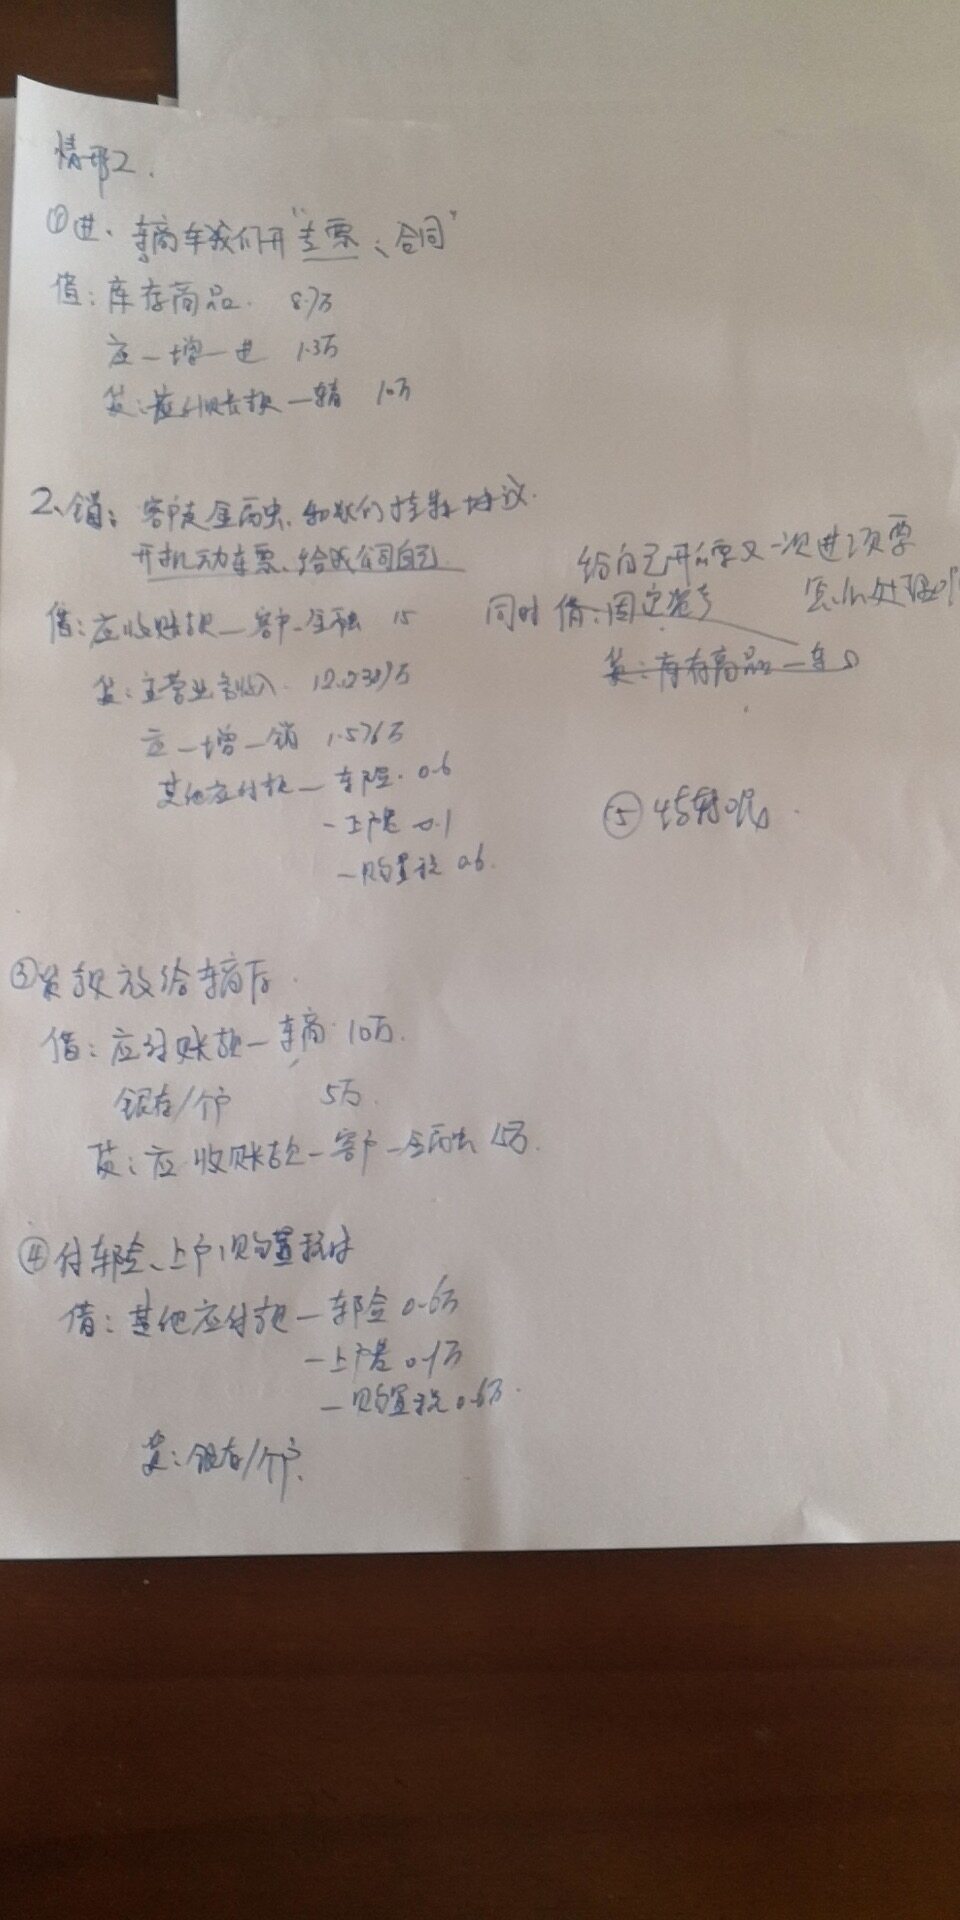 情形2.
①进、车商给我们开“专票、合同”
借:库存商品. 8.7万
应一增一进 1.3万
贷:应付账款一车商 10万
2、销:客户走金融、和我们挂靠协议.
开机动车票、给我公司自己.
借:应收账款一客户-金融 15
贷:主营业务收入
应一增一销 1.576万
其他应付款一车险. 0.6
-上户费 0.1
一购置税 0.6.
给自己开票又一次进项票
怎么处理
同时 借:固定资产
贷:库存商品一车
⑤ 结转呢
③贷款放给车商后.
借:应付账款一车商 10万.
银存/个户 5万.
贷:应收账款一客户-金融 15万.
④付车险、上户、购置税时
借:其他应付款一车险 0.6万
-上户费 0.1万
-购置税 0.6万.
贷:银存/个户.